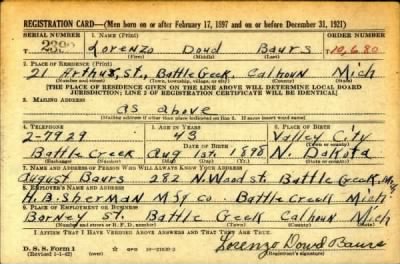 REGISTRATION CARD—(Men born on or after February 17, 1897 and on or before December 31, 1921)
SERIAL NUMBER 1. NAME (Print) ORDER NUMBER
Lorenzo Doud Baurs
(First) (Middle) (Last)
2. PLACE OF RESIDENCE (Print)
21 Arthur, St., Battle Creek, Calhoun Mich
(Number and street) (Town, township, village, or city) (County) (State)
[THE PLACE OF RESIDENCE GIVEN ON THE LINE ABOVE WILL DETERMINE LOCAL BOARD
JURISDICTION; LINE 2 OF REGISTRATION CERTIFICATE WILL BE IDENTICAL]
3. MAILING ADDRESS
as above
[Mailing address if other than place indicated on line 2. If same insert word same]
4. TELEPHONE 5. AGE IN YEARS 6. PLACE OF BIRTH
2-7929 43 Valley City
DATE OF BIRTH (Town or county)
Battle Creek Aug 1st 1898 N. Dakota
(Exchange) (Number) (Mo.) (Day) (Yr.) (State or country)
7. NAME AND ADDRESS OF PERSON WHO WILL ALWAYS KNOW YOUR ADDRESS
August Baurs 282 N. Wood st. Battle Creek, Mich
8. EMPLOYER'S NAME AND ADDRESS
H. B. Sherman Mfg Co. Battle Creek Mich
9. PLACE OF EMPLOYMENT OR BUSINESS
Barney St. Battle Creek Calhoun Mich
(Number and street or R. F. D. number) (Town) (County) (State)
I AFFIRM THAT I HAVE VERIFIED ABOVE ANSWERS AND THAT THEY ARE TRUE.
D. S. S. Form 1
(Revised 1-1-42) Lorenzo Dowd Baurs
(Registrant's signature)